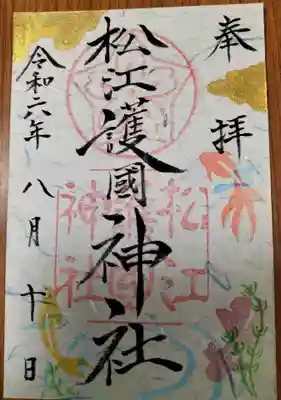 奉拝
松江護國神社
松江
護國
神社
令和六年八月十日